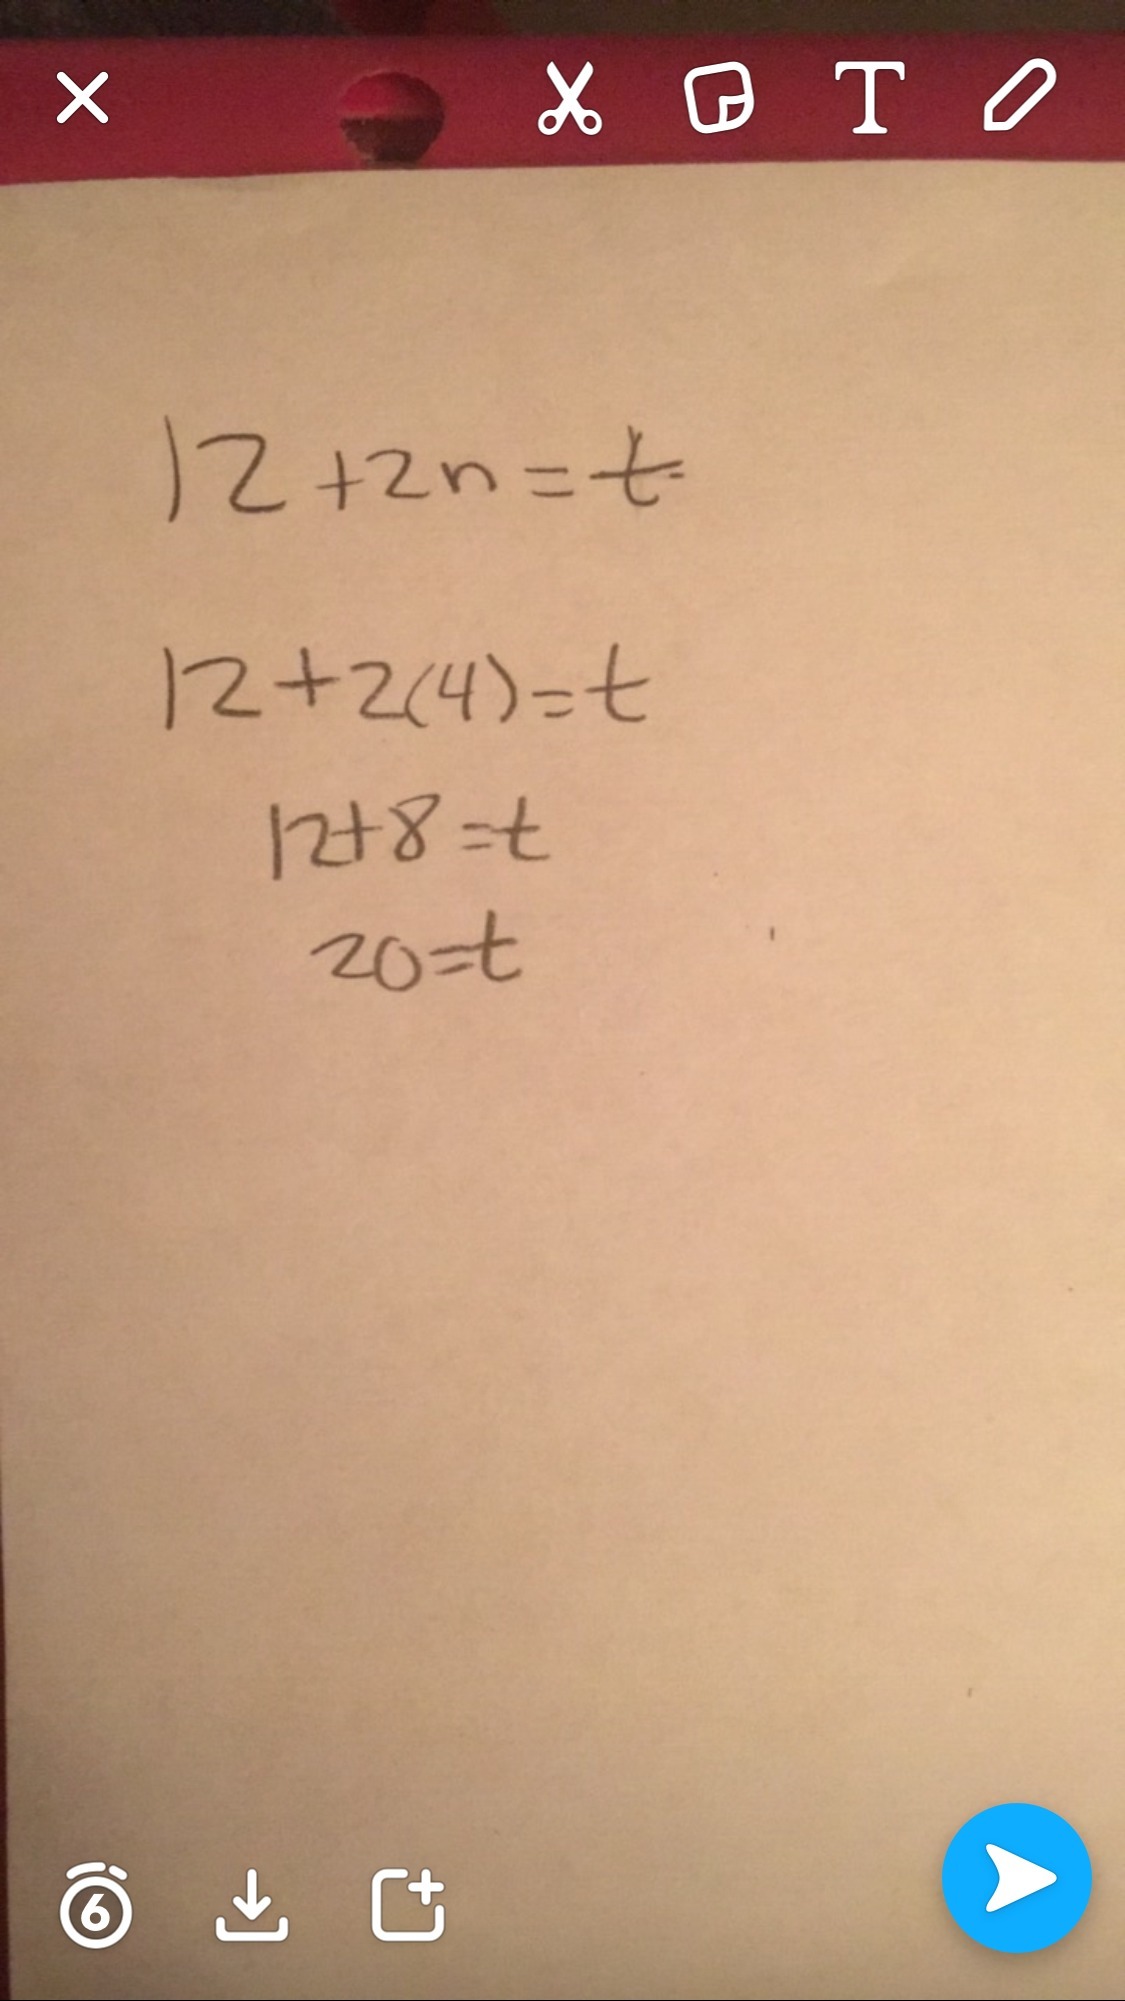 T
12+2n=t
12+2(4)=t
12+8=t
20=t
6